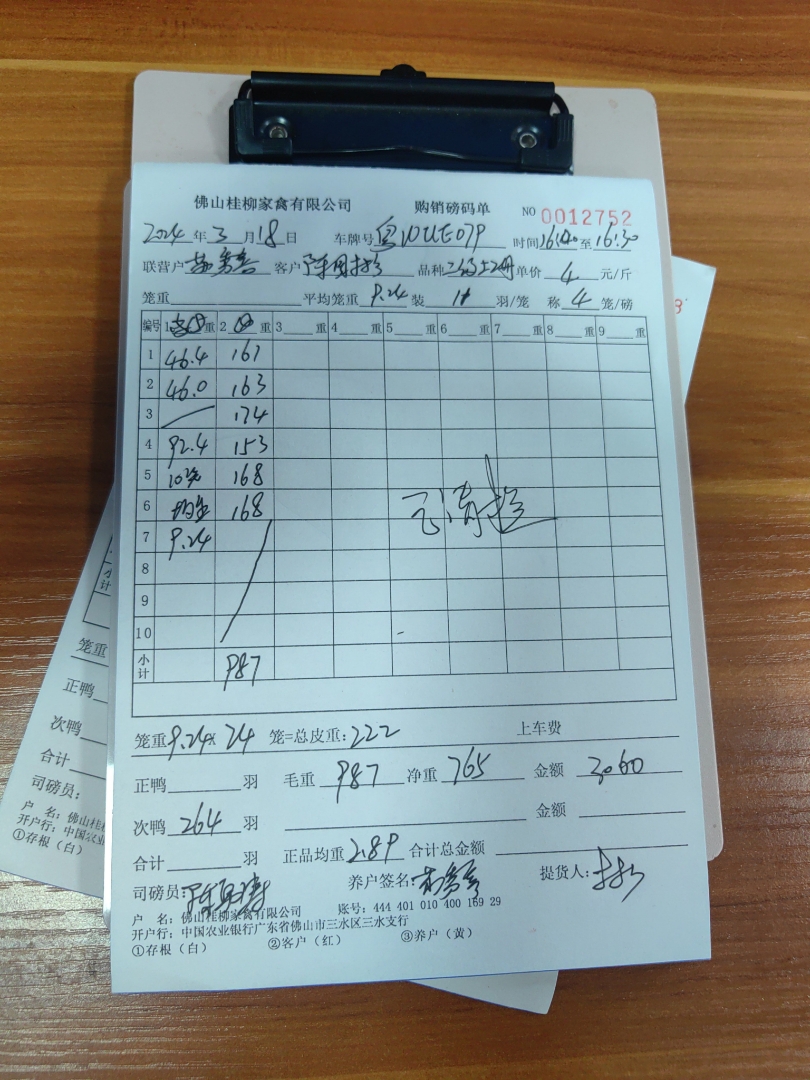 佛山桂柳家禽有限公司 购销磅码单 NO 0012752
2024年3月18日 车牌号 粤WUE079 时间16:00至16:30
联营户 客户 品种 单价 4 元/斤
笼重 平均笼重 9.24 装 11 羽/笼 称 4 笼/磅
编号 1 重 2 重 3 重 4 重 5 重 6 重 7 重 8 重 9 重
1 46.4 161
2 46.0 163
3 174
4 92.4 153
5 10笼 168
6 168
7 9.24
8
9
10
小计 987
笼重9.24×24 笼=总皮重:222 上车费
正鸭 羽 毛重 987 净重 765 金额 3060
次鸭 264 羽 金额
合计 羽 正品均重 2.89 合计总金额
司磅员: 养户签名: 提货人:
户 名:佛山桂柳家禽有限公司 账号:444 401 010 400 169 29
开户行:中国农业银行广东省佛山市三水区三水支行
①存根(白) ②客户(红) ③养户(黄)
小计
笼重
正鸭
次鸭
合计
司磅员:
户 名:佛山桂柳
开户行:中国农业
①存根(白)